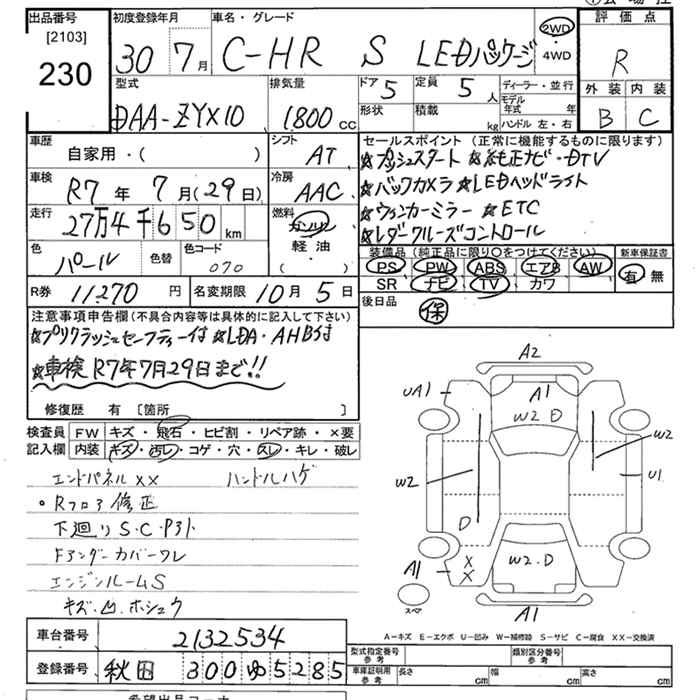 出品番号 初度登録年月 車名・グレード 評価点
[2103]
230 30 7月 C-HR S LEDパッケージ 2WD・4WD R
型式 排気量 ドア 5 定員 5人 ディーラー・並行 外装 内装
DAA-ZYX10 1800cc 形状 積載 kg モデル年式 年 ハンドル 左・右 B C
車歴 シフト セールスポイント(正常に機能するものに限ります)
自家用・( ) AT ★プッシュスタート ★純正ナビ・DTV
車検 冷房 ★バックカメラ ★LEDヘッドライト
R7年 7月(29日) AAC ★ウィンカーミラー ★ETC
走行 燃料 ★レダークルーズコントロール
27万4千650km ガソリン 軽油・( )
色 色替 色コード 装備品(純正品に限り○をつけてください) 新車保証書
パール 070 PS PW ABS エアB AW 有 無
SR ナビ TV カワ
R券 11270円 名変期限 10月5日 後日品 保
注意事項申告欄(不具合内容等は具体的に記入して下さい)
★プリクラッシュセーフティー付 ★LDA・AHB付
★車検R7年7月29日まで!!
修復歴 有 [箇所 ]
検査員 FW キズ・飛石・ヒビ割・リペア跡・×要
記入欄 内装 キズ・汚レ・コゲ・穴・スレ・キレ・破レ
エンドパネル××
ハンドルハゲ
。Rフロア修正
下廻りS.C.
Fアンダーカバーワレ
エンジンルームS
キズ.凹.ホシュウ
A2
UA1
A1
W2 D
W2
U1
W2
D
W2.D
A1
XX
A1
スペア
A-キズ E-エクボ U-凹み W-補修跡 S-サビ C-腐食 XX-交換済
車台番号 2132534
型式指定番号 参考 類別区分番号 参考
登録番号 秋田 300 ゆ 5285
車庫証明用 参考 長さ cm 幅 cm 高さ cm
希望出品コーナー